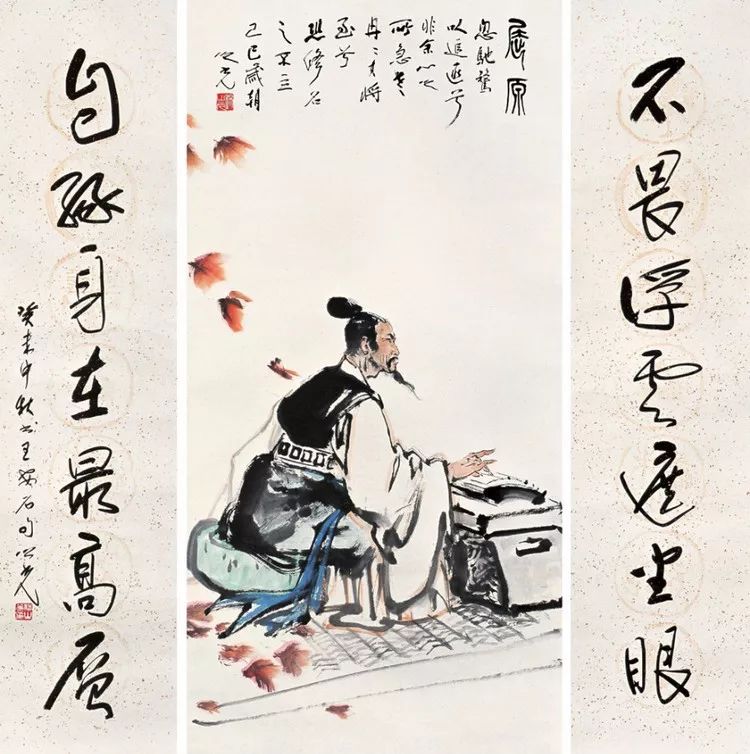 不畏浮雲遮望眼
屈原
忽馳騖
以追逐兮
非余心之
所急老
冉冉其將
至兮
恐修名
之不立
己巳歲朝
之光
自緣身在最高層
癸未中秋書王安石句 之光